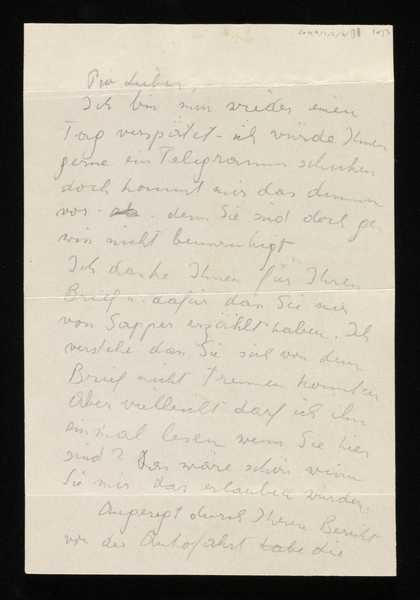 Lieber,
Ich bin nun wieder einen
Tag verspätet – ich würde Ihnen
gerne ein Telegramm schicken
doch kommt mir das dumm
vor – denn Sie sind doch ge
wiss nicht beunruhigt
Ich danke Ihnen für Ihren
Brief u. dafür dass Sie mir
von Sapper erzählt haben. Ich
verstehe dass Sie sich von dem
Brief nicht trennen konnten
Aber vielleicht darf ich ihn
einmal lesen wenn Sie hier
sind? Das wäre schön wenn
Sie mir das erlauben würden.
Angeregt durch Ihren Bericht
von der Autofahrt habe die